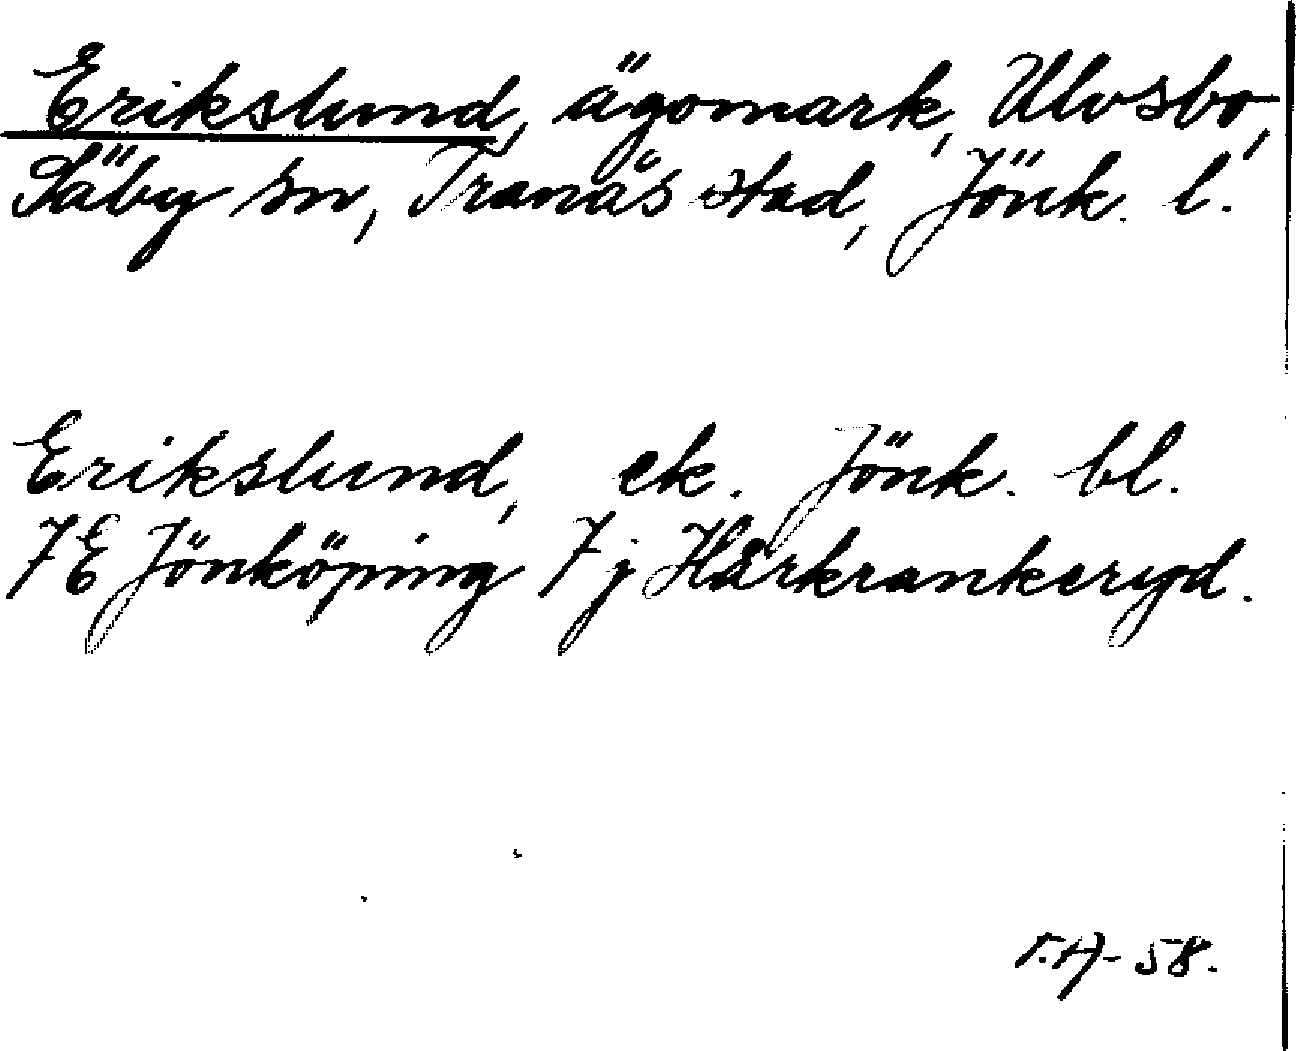 Erikslund, ägomark, Ulvsbo,
Säby sn, Tranås stad, Jönk. l.
Erikslund, ek. Jönk. bl.
7E Jönköping 7j Hårkrankeryd.
T.A- 58.